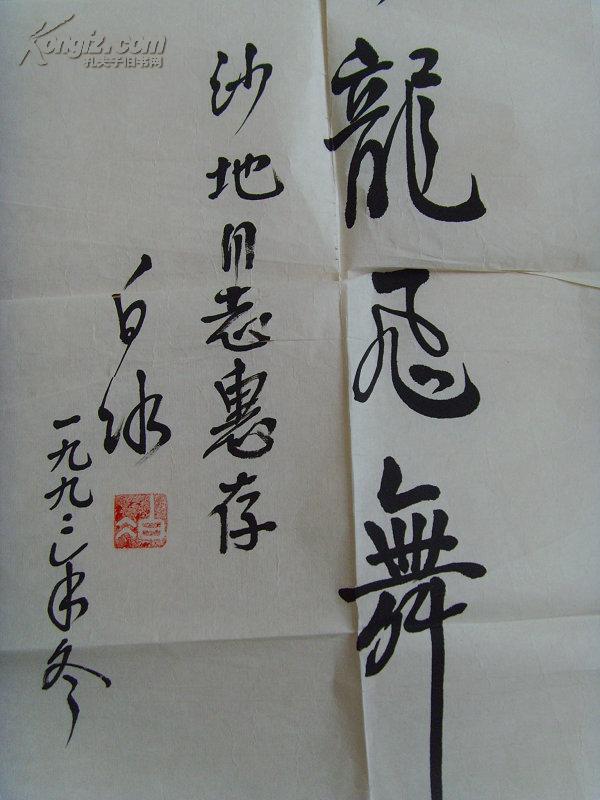 龍飛舞
沙地同志惠存
白冰
一九九二年冬
Kongfz.com
孔夫子旧书网